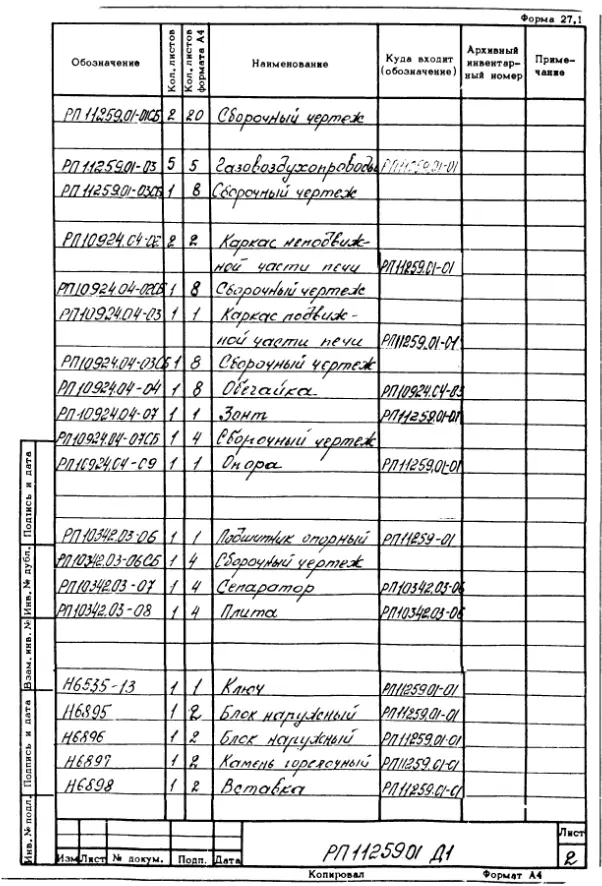 Форма 27,1
Обозначение Кол. листов Кол. листов формата А4 Наименование Куда входит (обозначение) Архивный инвентарный номер Примечание
РП11259.01-01СБ 2 20 Сборочный чертеж
РП11259.01-03 5 5 Газовоздухопроводы РП11259.01-01
РП11259.01-03СБ 1 8 Сборочный чертеж
РП10924.04-02 2 2 Каркас неподвиж-
ной части печи РП11259.01-01
РП10924.04-02СБ 1 8 Сборочный чертеж
РП10924.04-03 1 1 Каркас подвиж-
ной части печи РП11259.01-01
РП10924.04-03СБ 1 8 Сборочный чертеж
РП10924.04-04 1 8 Обечайка РП10924.04-03
РП10924.04-07 1 1 Зонт РП11259.01-01
РП10924.04-07СБ 1 4 Сборочный чертеж
РП10924.04-09 1 1 Опора РП11259.01-01
РП10342.03-06 1 1 Подшипник опорный РП11259-01
РП10342.03-06СБ 1 4 Сборочный чертеж
РП10342.03-07 1 4 Сепаратор РП10342.03-06
РП10342.03-08 1 4 Плита РП10342.03-06
Н6535-13 1 1 Ключ РП11259.01-01
Н6895 1 2 Блок наружный РП11259.01-01
Н6896 1 2 Блок наружный РП11259.01-01
Н6897 1 2 Камень горелочный РП11259.01-01
Н6898 1 2 Вставка РП11259.01-01
Инв. № подл. Подпись и дата Взам. инв. № Инв. № дубл. Подпись и дата
Изм Лист № докум. Подп. Дата
РП11259.01 Д1
Лист
2
Копировал Формат А4